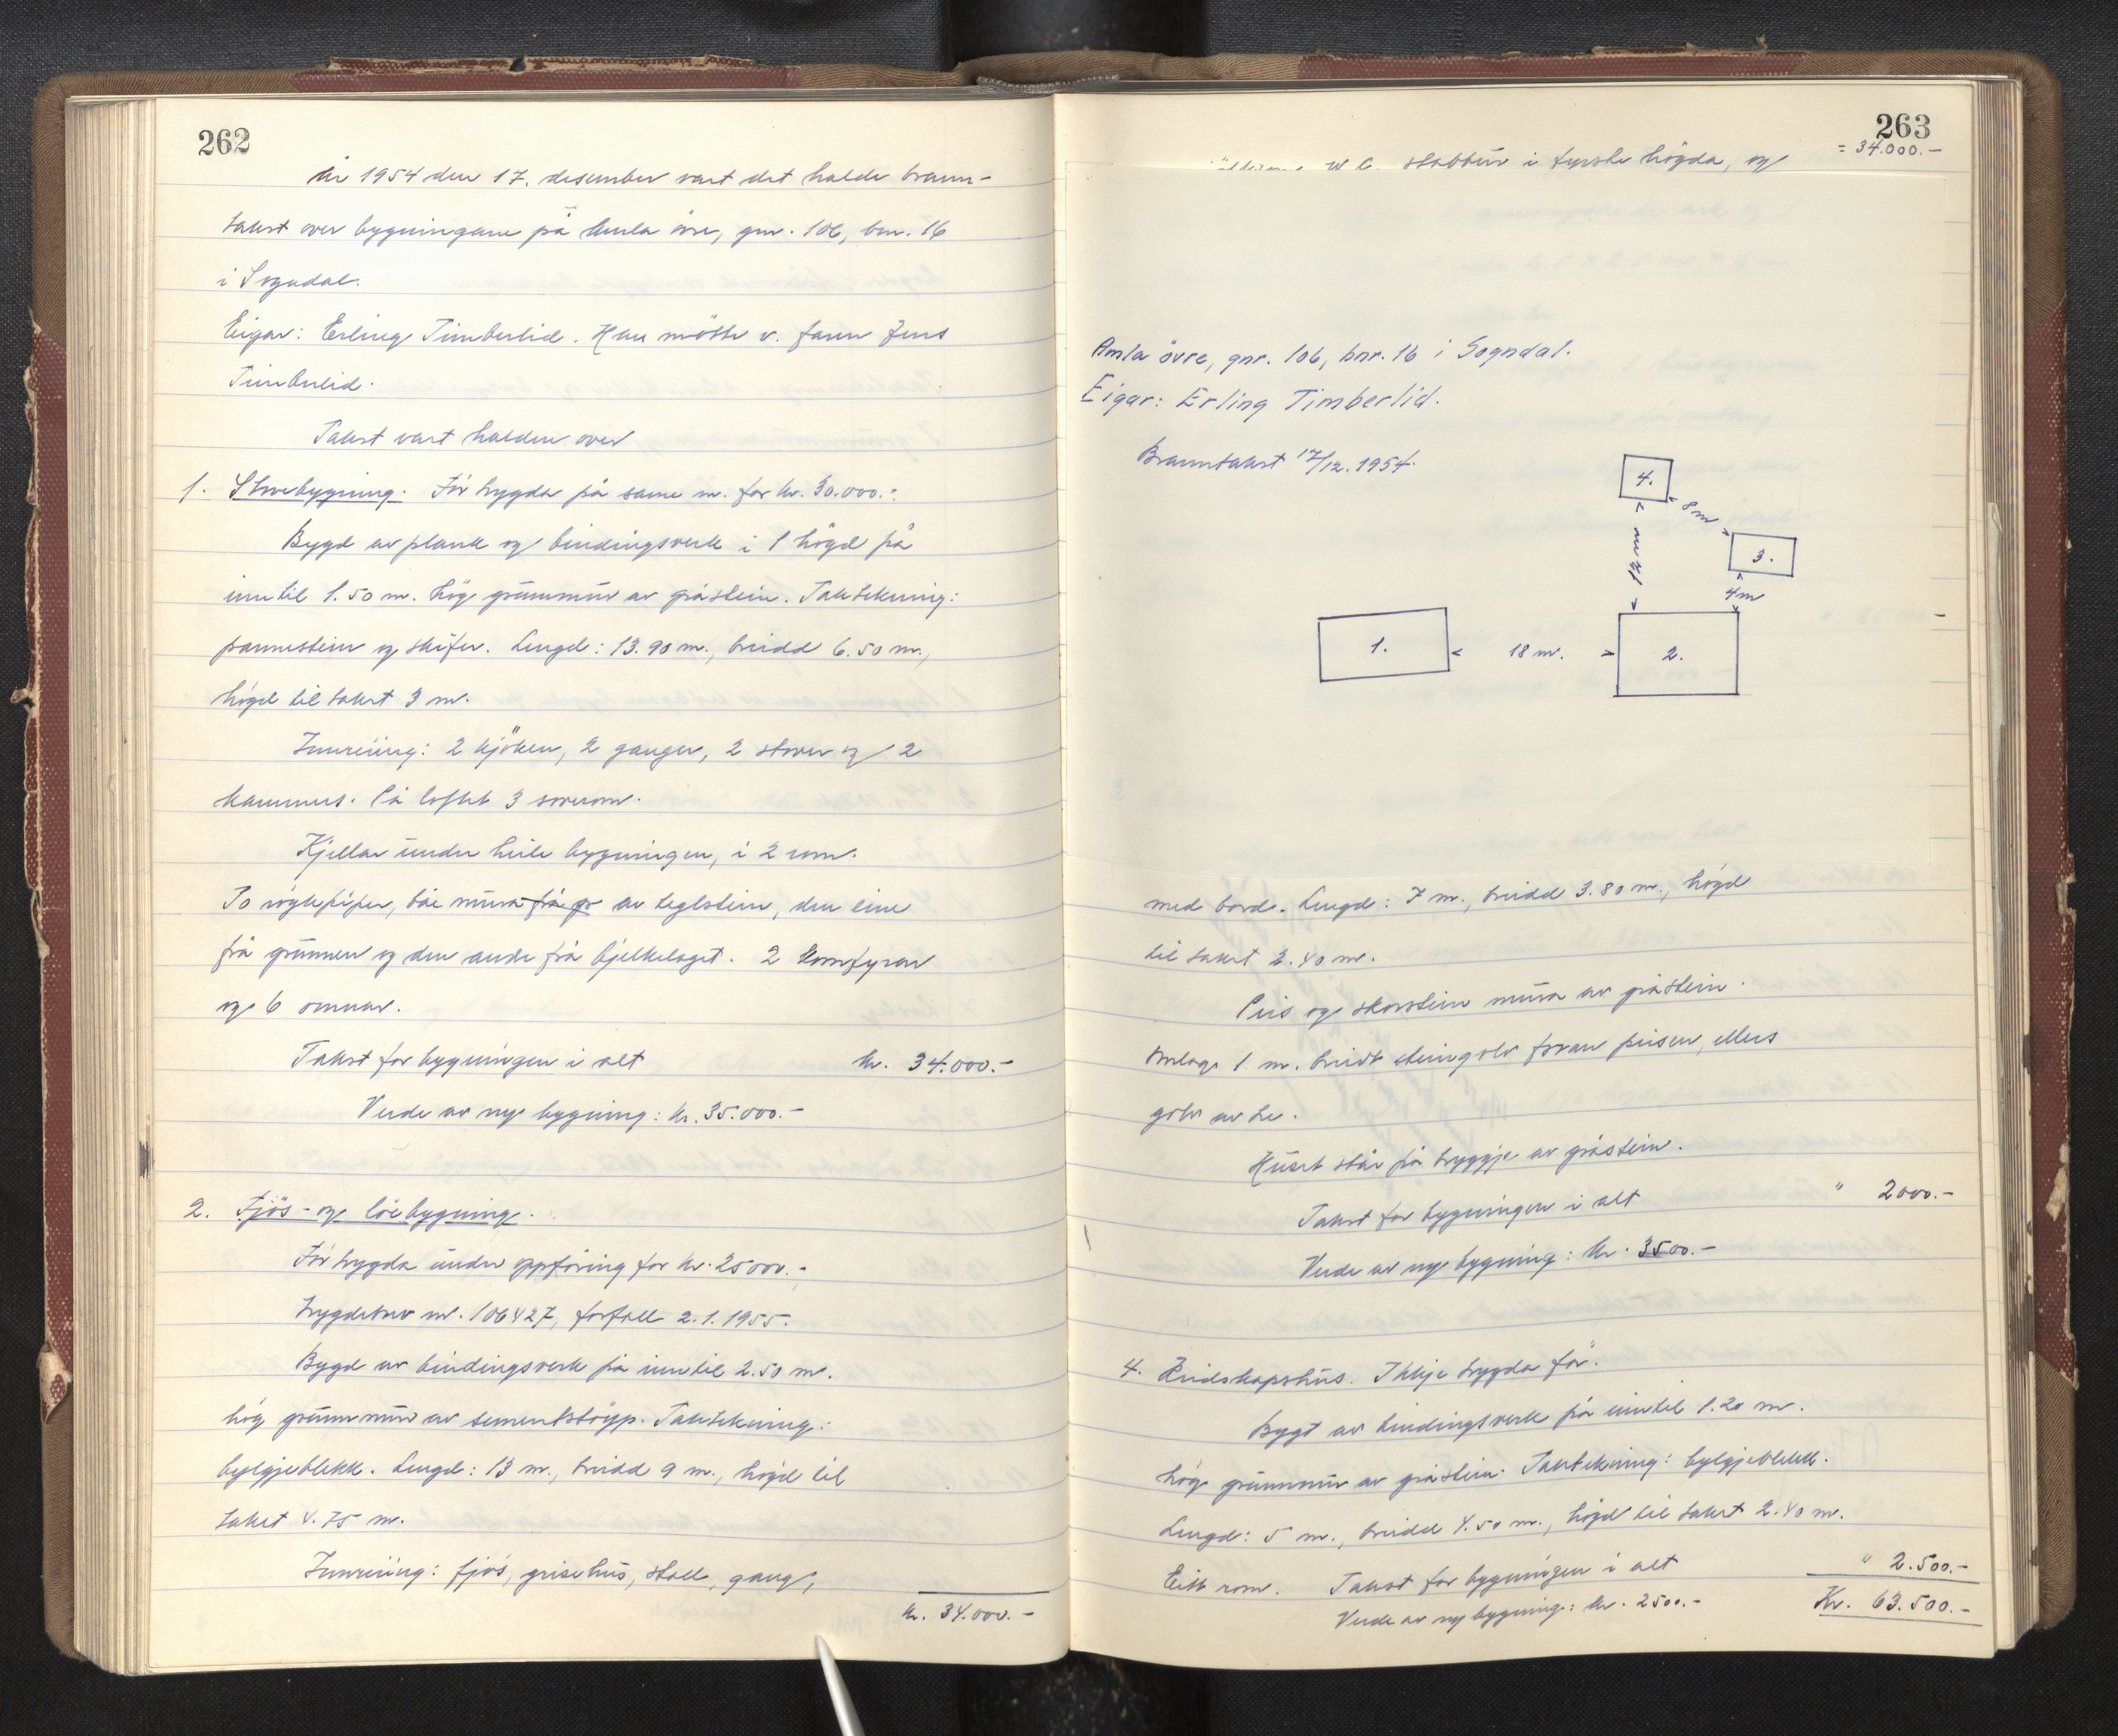 262
År 1954 den 17. desember vart det halde brann-
takst over bygningane på Amla övre, gnr. 106, bnr. 16
i Sogndal.
Eigar: Erling Timberlid. Han mötte v. faren Jens
Timberlid.
Takst vart halden over
1. Stovebygning.För trygda på same nr. for kr. 30.000.-
Bygd av plank og bindingsverk i 1 högd på
inntil 1.50 m. hög grunnmur av gråstein. Taktekning:
pannestein og skifer. Lengd: 13.90 m., breidd 6.50 m.,
högd til taket 3 m.
Innreiing: 2 kjöken, 2 ganger, 2 stover og 2
kammers. På loftet 3 soverom.
Kjellar under heile bygningen, i 2 rom.
To röykpiper, båe mura frå gr av teglstein, den eine
frå grunnen og den andre frå bjelkelaget. 2 komfyrar
og 6 omnar.
Takst for bygningen i alt kr. 34.000.-
Verde av ny bygning: kr. 35.000.-
2. Fjös- og löebygning.
För trygda under oppföring for kr. 25000.-,
trygdebrev nr. 106427, forfall 2.1.1955.
Bygd av bindingsverk på inntil 2.50 m.
hög grunnmur av sementstöyp. Taktekning:
bylgjeblekk. Lengd: 13 m., breidd 9 m., högd til
taket 4.75 m.
Innreiing: fjös, grisehus, stall, gang,
kr. 34.000.-
263
= 34.000.-
W.C. stabbur i fyrste högda, og
Amla övre, gnr. 106, bnr. 16 i Sogndal.
Eigar: Erling Timberlid.
Branntakst 17/12. 1954.
4.
8 m
3.
12 m
4 m
1.
18 m.
2.
med bord. Lengd: 7 m., breidd 3.80 m., högd
til taket 2.40 m.
Peis og skorstein mura av gråstein.
Omlag 1 m. breidt steingolv foran peisen, ellers
golv av tre.
Huset står på tryggje av gråstein.
Takst for bygningen i alt " 2000.-
Verde av ny bygning: kr. 3500.-
4. Reidskapshus. Ikkje trygda för.
Bygt av bindingsverk på inntil 1.20 m.
hög grunnmur av gråstein. Taktekning: bylgjeblekk.
Lengd: 5 m., breidd 4.50 m., högd til taket 2.40 m.
Eitt rom. Takst for bygningen i alt " 2.500.-
Verde av ny bygning: kr. 2500.- Kr. 63.500.-